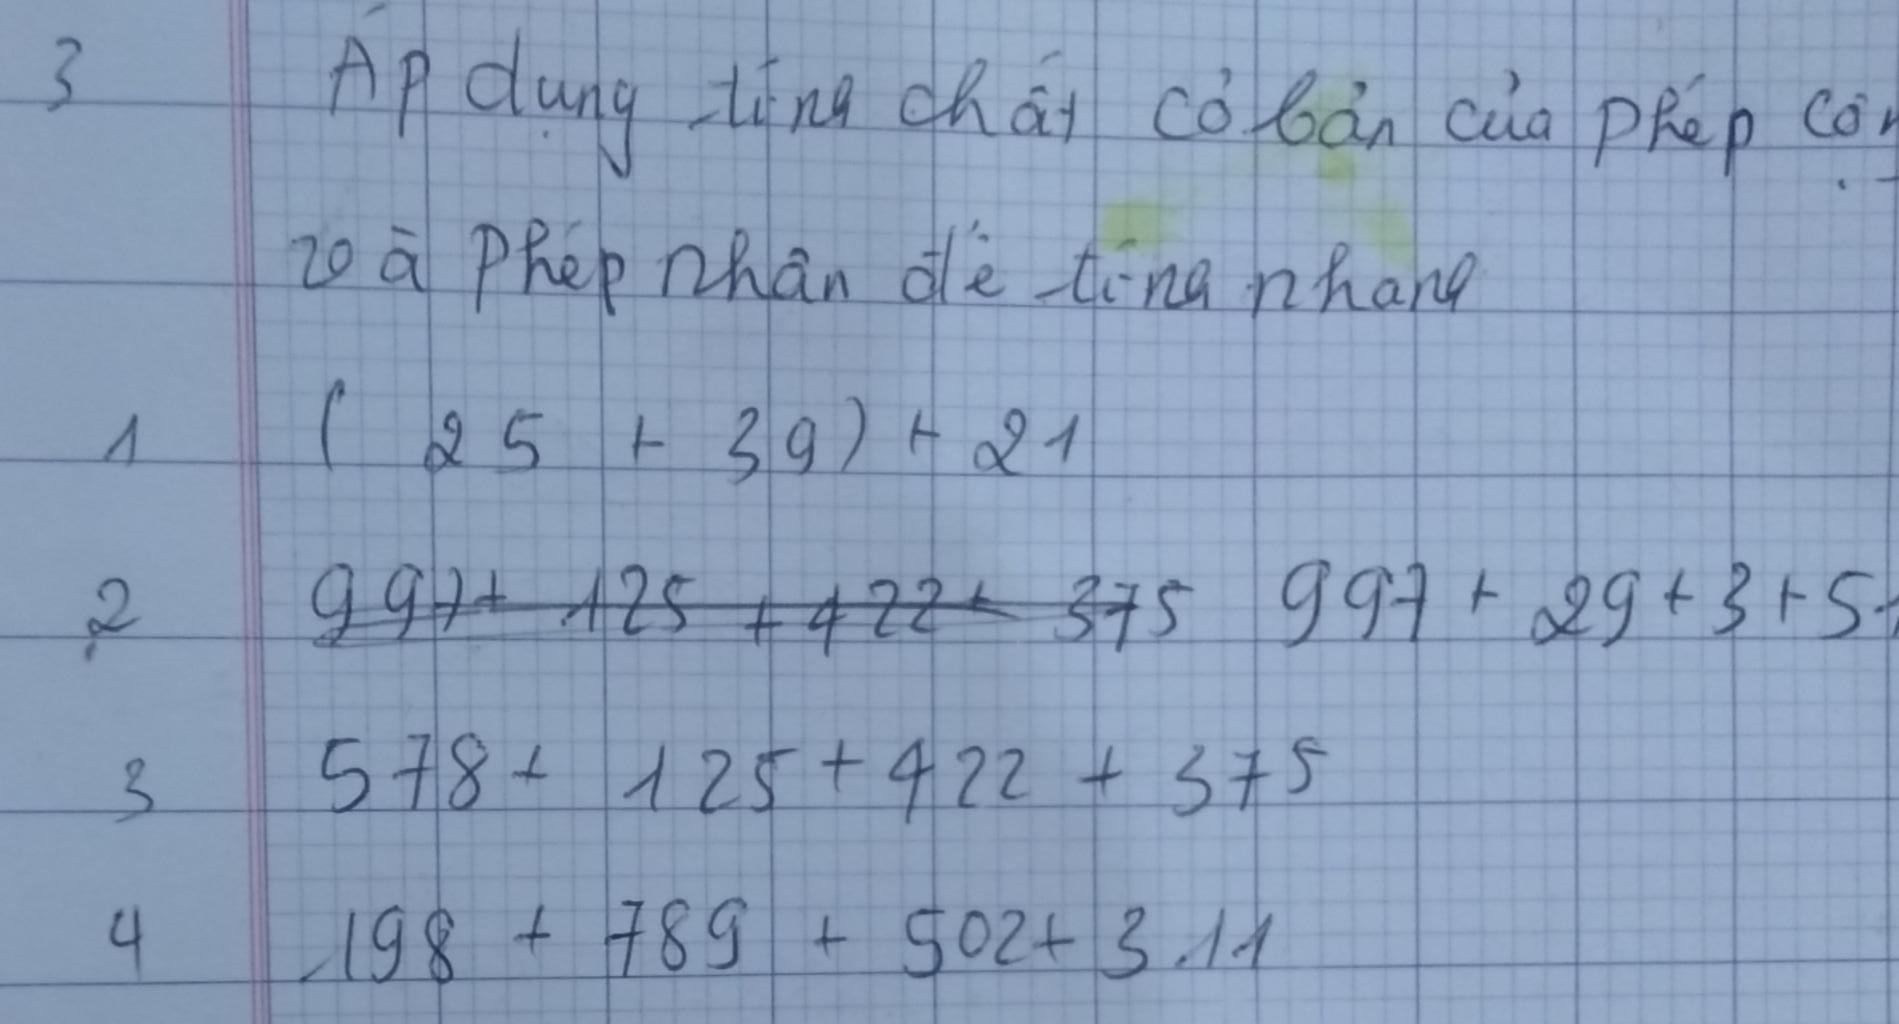 3 Áp dụng tíng chất cơ bản của phép cộn
và phép nhân để tíng nhang
1 ( 25 + 39) + 21
2 997+ 125 + 422+ 375 997 + 29+3+5+
3 578+ 125+422 + 375
4 198 + 789 + 502+ 311